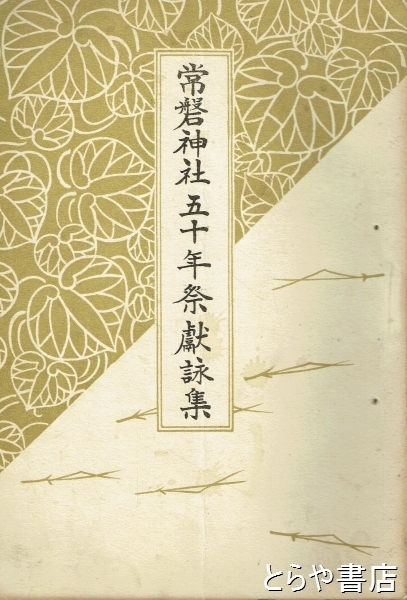 常磐神社五十年祭獻詠集
とらや書店